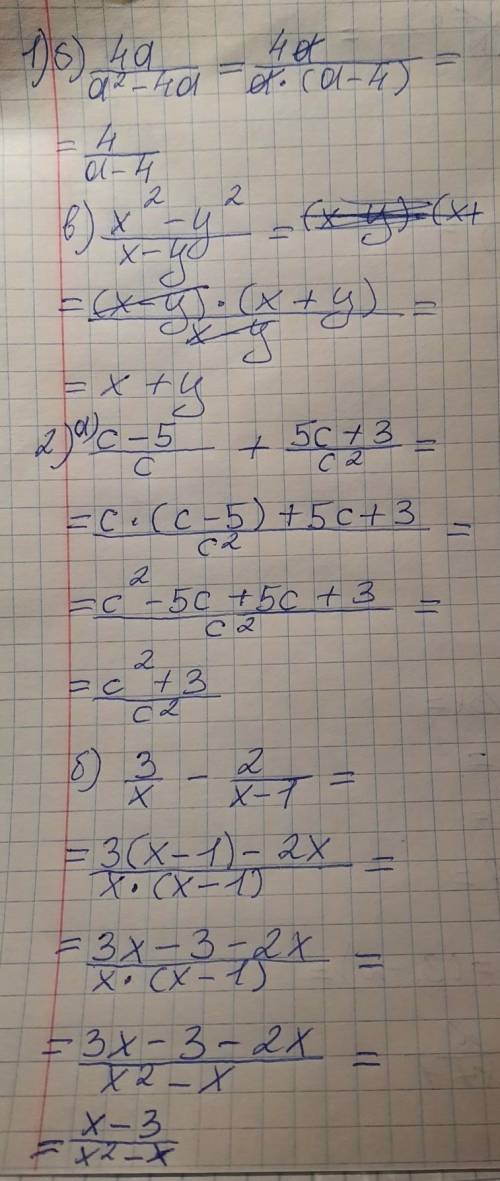 1) б) 4a/(a² - 4a) = 4a/(a · (a - 4)) =
= 4/(a - 4)
в) (x² - y²)/(x - y) = (x - y) · (x +
= ((x - y) · (x + y))/(x - y) =
= x + y
2) а) (c - 5)/c + (5c + 3)/c² =
= (c · (c - 5) + 5c + 3)/c² =
= (c² - 5c + 5c + 3)/c² =
= (c² + 3)/c²
б) 3/x - 2/(x - 1) =
= (3(x - 1) - 2x)/(x · (x - 1)) =
= (3x - 3 - 2x)/(x · (x - 1)) =
= (3x - 3 - 2x)/(x² - x) =
= (x - 3)/(x² - x)